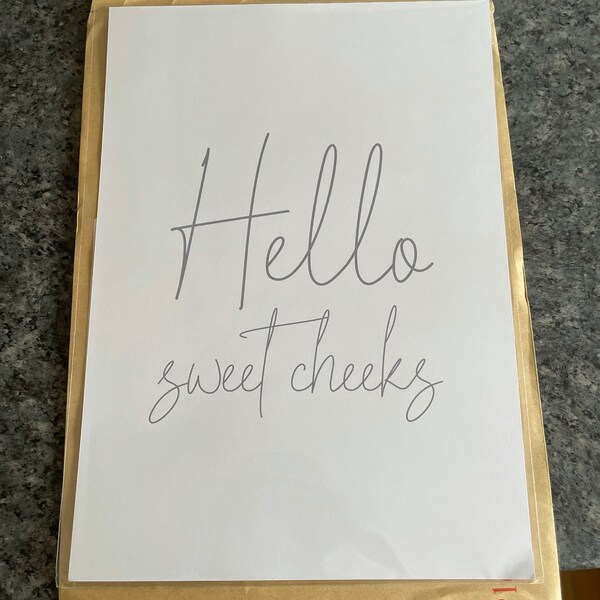 Hello
sweet cheeks